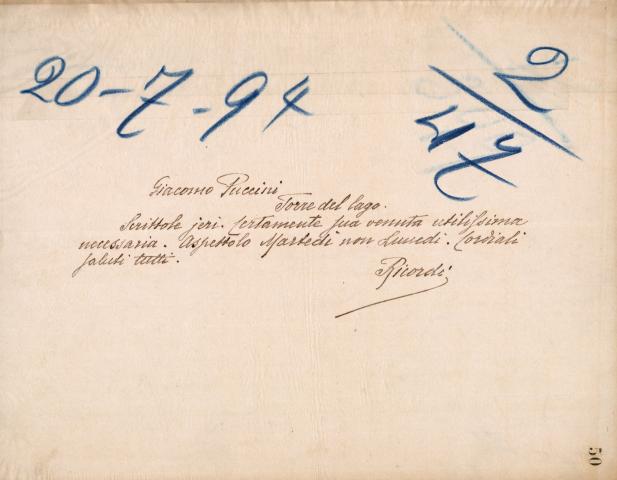 20-7-94
2/47
Giacomo Puccini
Torre del lago.
Scrittole jeri. Certamente sua venuta utilissima
necessaria. Aspettolo Martedì non Lunedì. Cordiali
saluti tutti.
Ricordi
50